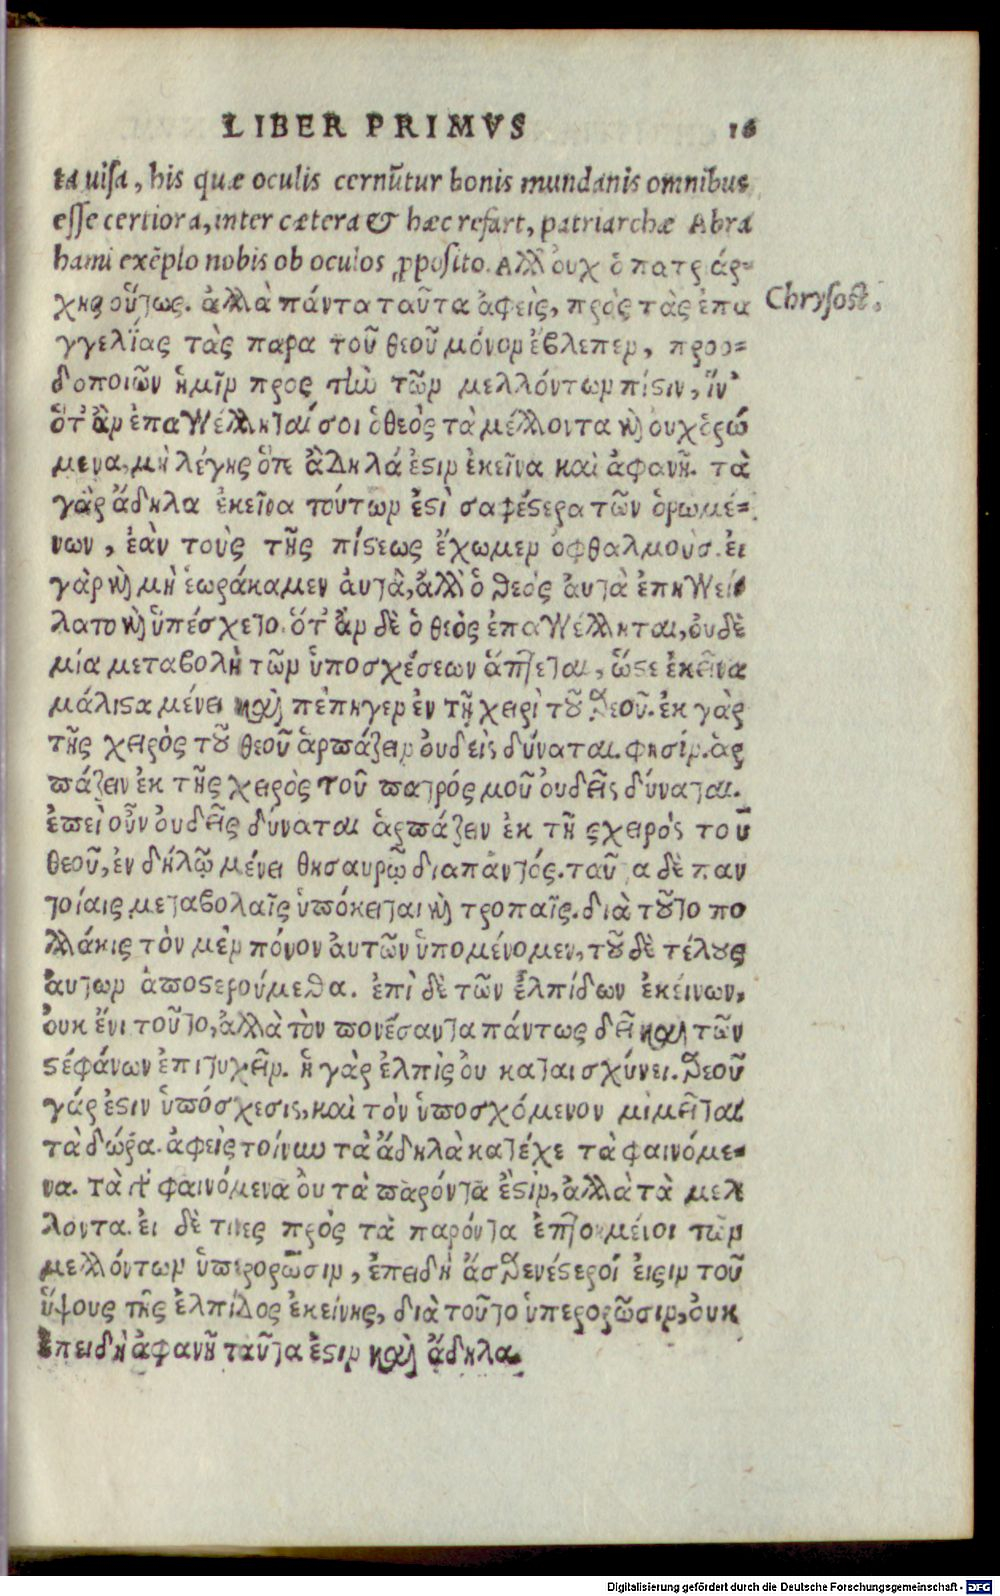 LIBER PRIMVS 16
ta uisa, his quæ oculis cernũtur bonis mundanis omnibus
esse certiora, inter cætera & hæc refart, patriarchæ Abra
hami exẽplo nobis ob oculos ꝓposito. Αλλ' ουχ ὁ πατριάρ-
χης οὕτως. ἀλλὰ πάντα ταῦτα ἀφεὶς, πρὸς τὰς ἐπα
Chrysost.
γγελίας τὰς παρα τοῦ θεοῦ μόνον ἔβλεπεν, προο-
δοποιῶν ἡμῖν προς τὴν τῶν μελλόντων πίστιν, ἵν'
ὅτ' ἂν ἐπαγγέλληται σοι ὁ θεὸς τὰ μέλλοντα καὶ ουχ ὁρώ
μενα, μὴ λέγης ὅτι ἄδηλά ἐστιν ἐκεῖνα καὶ ἀφανῆ. τὰ
γὰρ ἄδηλα ἐκεῖνα τούτων ἐστὶ σαφέστερα τῶν ὁρωμέ-
νων, ἐὰν τοὺς τῆς πίστεως ἔχωμεν ὀφθαλμούσ. ἐι
γὰρ καὶ μὴ ἑωράκαμεν ἀυτὰ, ἀλλ' ὁ θεὸς ἀυτὰ ἐπηγγεί
λατο καὶ ὑπέσχετο. ὅτ' ἂν δὲ ὁ θεὸς ἐπαγγέλληται, ὀυδὲ
μία μεταβολὴ τῶν ὑποσχέσεων ἅπτεται, ὥστε ἐκεῖνα
μάλιστα μένει καὶ πέπηγεν ἐν τῇ χειρὶ τοῦ θεοῦ. ἐκ γὰρ
τῆς χειρὸς τοῦ θεοῦ ἁρπάζειν ὀυδεὶς δύναται. φησίν. ἁρ
πάζειν ἐκ τῆς χειρὸς τοῦ πατρός μοῦ ὀυδεὶς δύναται.
ἐπεὶ οὖν ὀυδεὶς δύναται ἁρπάζειν ἐκ τῆ ς χειρὸς τοῦ
θεοῦ, ἐν δήλῳ μένει θησαυρῷ διαπάντός. ταῦ α δὲ παν
τοίαις μεταβολαῖς ὑπόκειται καὶ τροπαῖς. διὰ τοῦτο πο
λλάκις τὸν μὲν πόνον ἀυτῶν ὑπομένομεν, τοῦ δὲ τέλους
ἀυτων ἀποστερούμεθα. ἐπὶ δὲ τῶν ἐλπίδων ἐκείνων,
ὀυκ ἔνι τοῦτο, ἀλλὰ τὸν πονέσαντα πάντως δεῖ καὶ τῶν
στέφάνων ἐπιτυχεῖν. ἡ γὰρ ἐλπὶς ὀυ καταισχύνει. θεοῦ
γάρ ἐστιν ὑπόσχεσις, καὶ τὸν ὑποσχόμενον μιμεῖται
τὰ δῶρα. ἀφεὶς τοίνυν τὰ ἄδηλὰ κατέχε τὰ φαινόμε-
να. τὰ φαινόμενα ὀυ τὰ παρόντα ἐστιν, ἀλλὰ τὰ μελ
λοντα. ἐι δὲ τινες πρὸς τὰ παρόντα ἐπτοημένοι τῶν
μελλόντων ὑπερορῶσιν, ἐπειδὴ ἀσθενέστεροί ἐισιν τοῦ
ὕψους τῆς ἐλπίδος ἐκείνης, διὰ τοῦτο ὑπερορῶσιν, ὀυκ
ἐπειδὴ ἀφανῆ ταῦτα ἐστιν καὶ ἄδηλα.
Digitalisierung gefördert durch die Deutsche Forschungsgemeinschaft - DFG